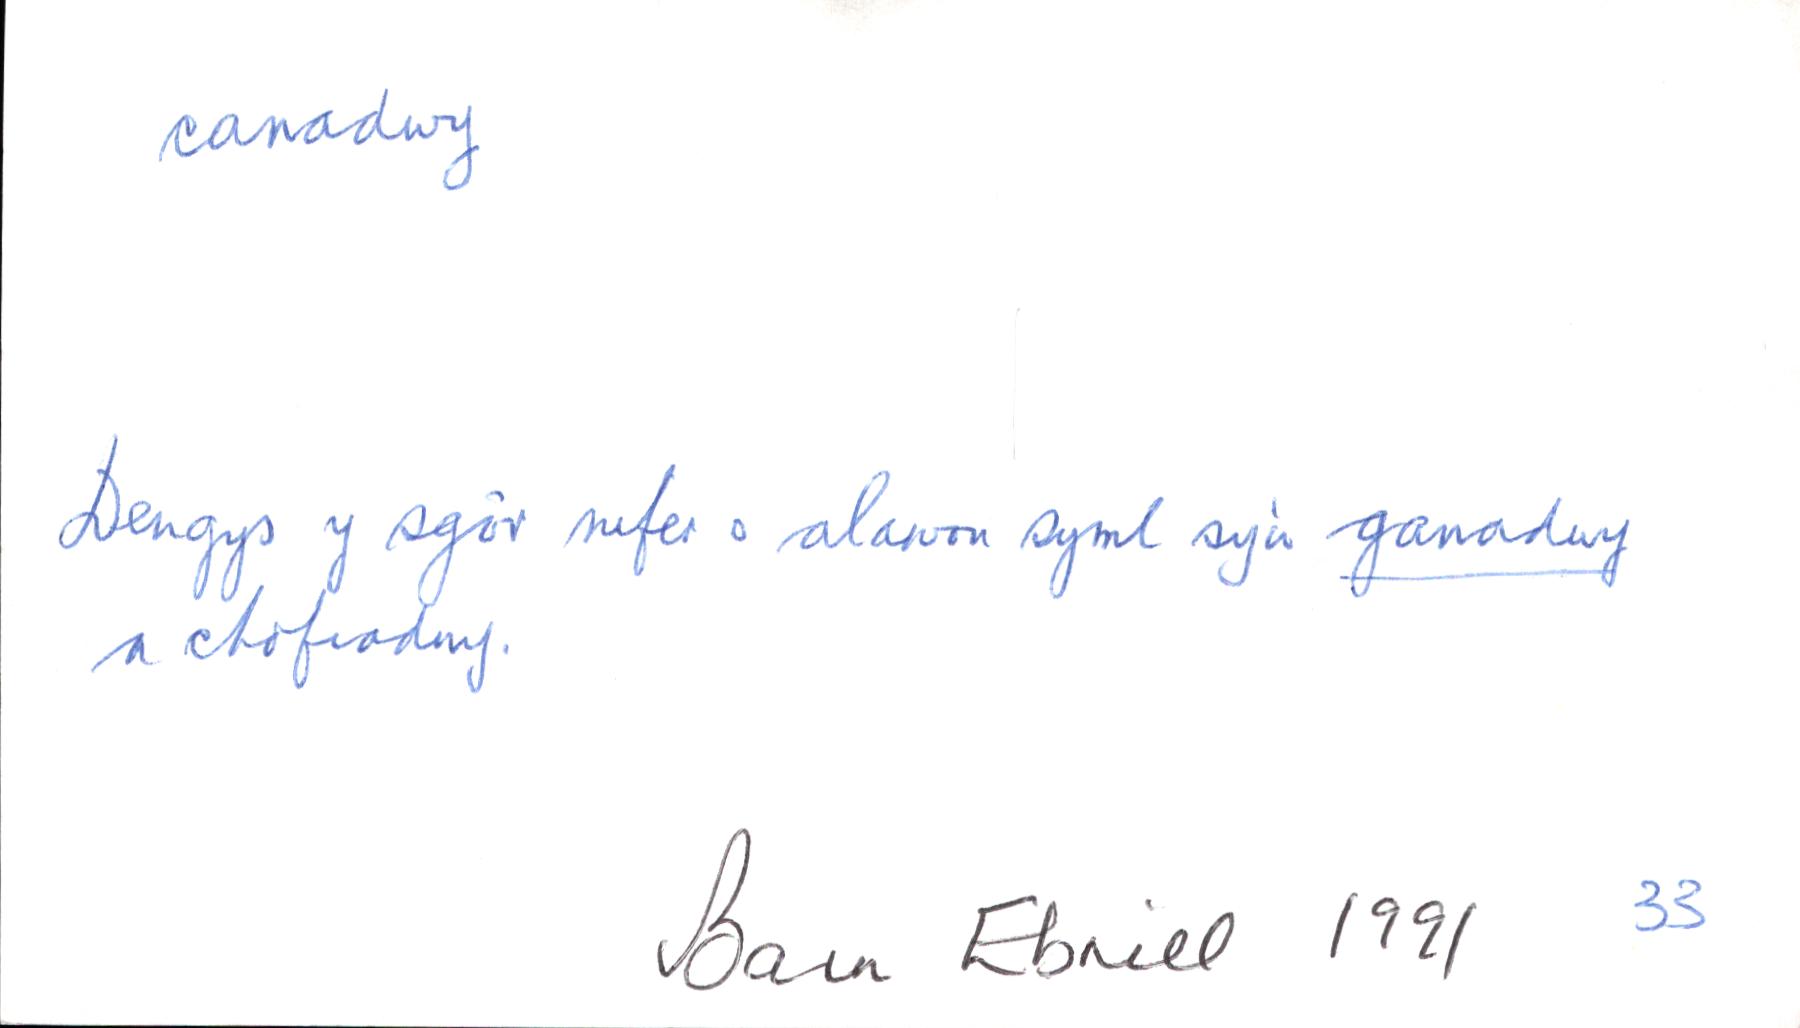 canadwy
Dengys y sgôr nifer o alawon syml sy'n ganadwy
a chofiadwy.
Barn Ebrill 1991 33